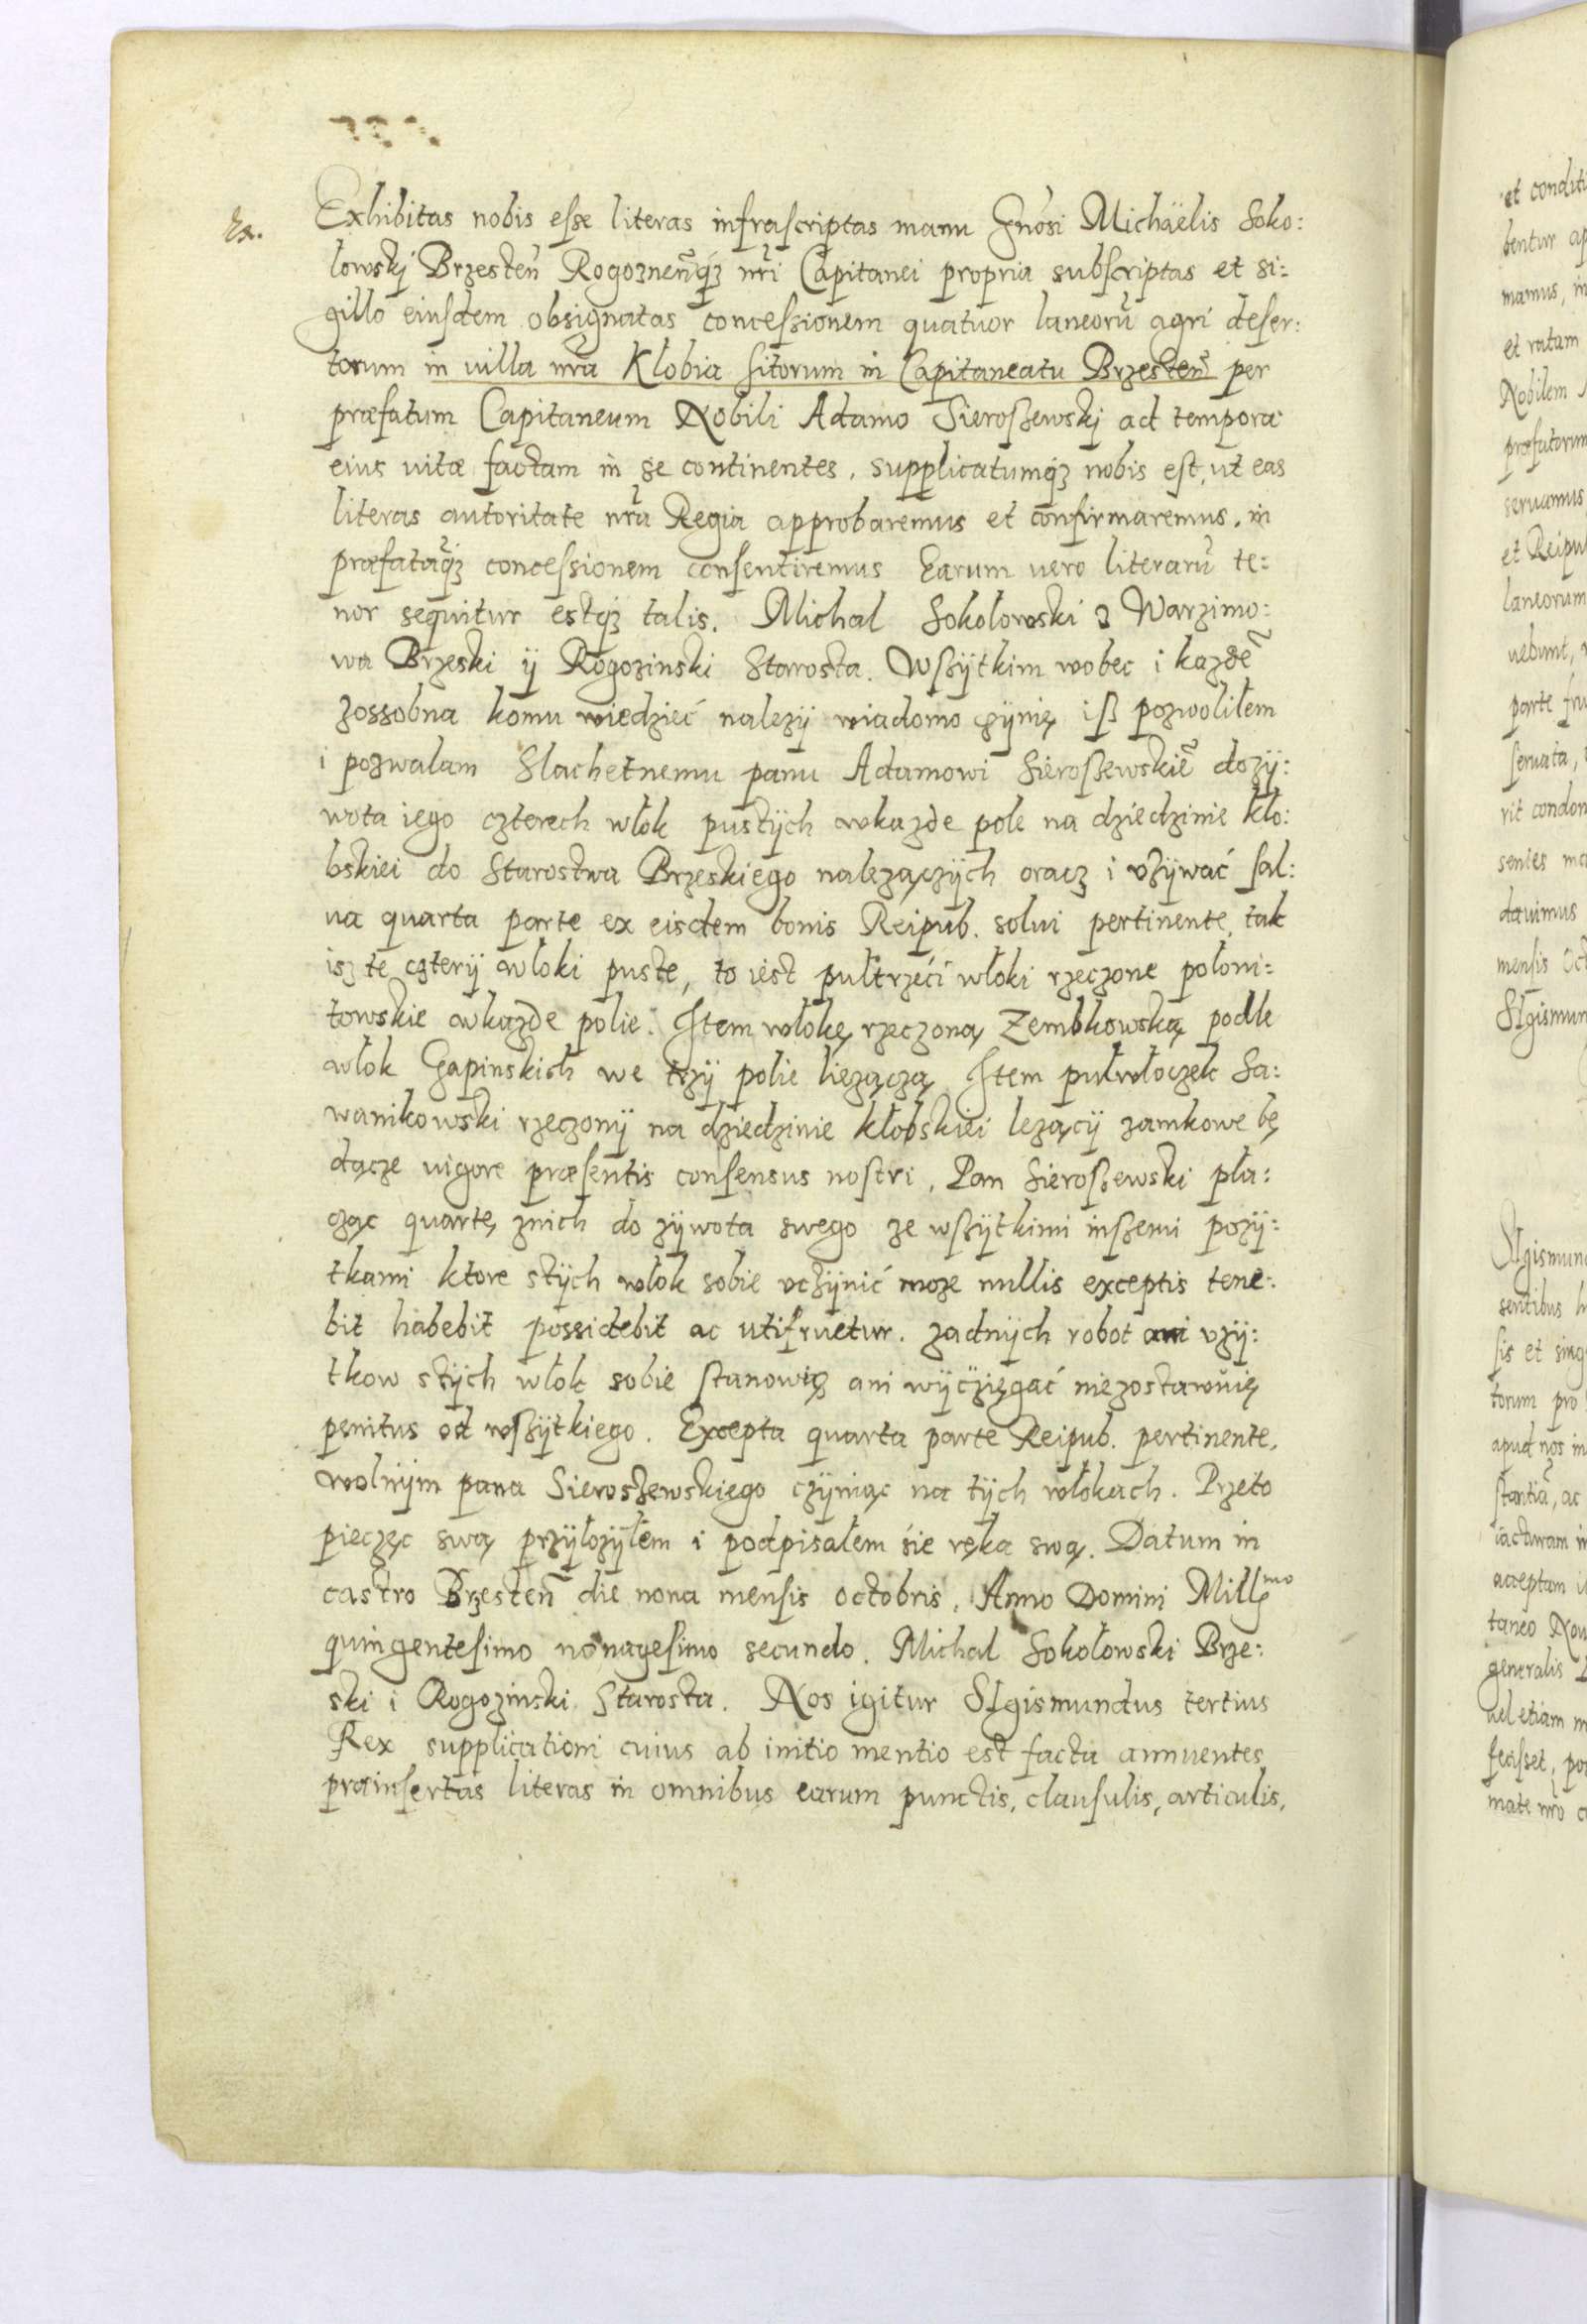 Ex.
Exhibitas nobis esse literas infrascriptas manu Gnosi Michäelis Soko:
lowskj Brzesteñ Rogoznenq̃ȝ nr̃i Capitanei propria subscriptas et si:
gillo eiusdem obsignatas concessionem quatuor laneorũ agri deser:
torum in villa nr̃a Kłobia sitorum in Capitaneatu Brzesteñ per
præfatum Capitaneum Nobili Adamo Sieroszewskj ad tempora
eius uitæ factam in se continentes. supplicatumqȝ nobis est, ut eas
literas autoritate nr̃a Regia approbaremus et confirmaremus. in
præfatãqȝ concessionem consentiremus Earum uero literarũ te:
nor sequitur estqȝ talis. Michal Sokolowski z Warzimo:
wa Brzeski ÿ Rogozinski Starosta. Wszÿtkim wobec i kazdẽ
zossobna komu wiedzieć nalezÿ wiadomo czÿnię iß pozwoliłem
i pozwalam Slachetnemu panu Adamowi Sieroszewskiẽ dozÿ:
wota iego czterech włok pustÿch wkazde pole na dziedzinie kło:
bskiei do Starostwa Brzeskiego nalezączÿch oracz i vzÿwać sal:
ua quarta parte ex eisdem bonis Reipub. solui pertinente, tak
isz te czterÿ włoki puste, to iest pułtrzeći włoki rzeczone poloni:
towskie wkazde polie. Item włokę rzeczoną Zembkowską podle
włok Gapinskich we trzÿ polie liezączą Item pułwłoczek Sa:
wanikowski rzeczonÿ na dziedzinie kłobskiei lezącÿ zamkowe bę
dącze uigore præsentis consensus nostri. Pan Sieroszewski pła:
cząc quartę znich do zÿwota swego ze wszÿtkimi inszemi pozÿ:
tkami ktore stÿch włok sobie vczÿnić moze nullis exceptis tene:
bit habebit possidebit ac utifruetur. zadnÿch robot ani vzÿ:
tkow stÿch włok sobie stanowię ani wÿczięgać niezostawuię
penitus od wszÿtkiego. Excepta quarta parte Reipub. pertinente.
wolnÿm pana Sieroszewskiego czÿniąc na tÿch włokach. Przeto
pieczęc swą przÿłozÿłem i podpisałem śie ręka swą. Datum in
castro Brzesteñ die nona mensis octobris. Anno Domini Millmo
quingentesimo nonagesimo secundo. Michal Sokołowski Brze:
ski i Rogozinski Starosta. Nos igitur SIgismundus tertius
Rex supplicationi cuius ab initio mentio est facta annuentes
præinsertas literas in omnibus earum punctis, clausulis, articulis,
et conditi
bentur ap
mamus, in
et ratam
Nobilem
præfatorum
seruamus
et Reipub
laneorum
uebunt,
parte fru
seruata,
rit condon
senles ma
dauimus
mensis Oct
SIgismun
SIgismund
sentibus
sis et sing
torum pro
apud nos in
stantiã, ac
iacturam in
acceptam
taneo Nou
generalis
uel etiam
feasset, po
mate nr̃o